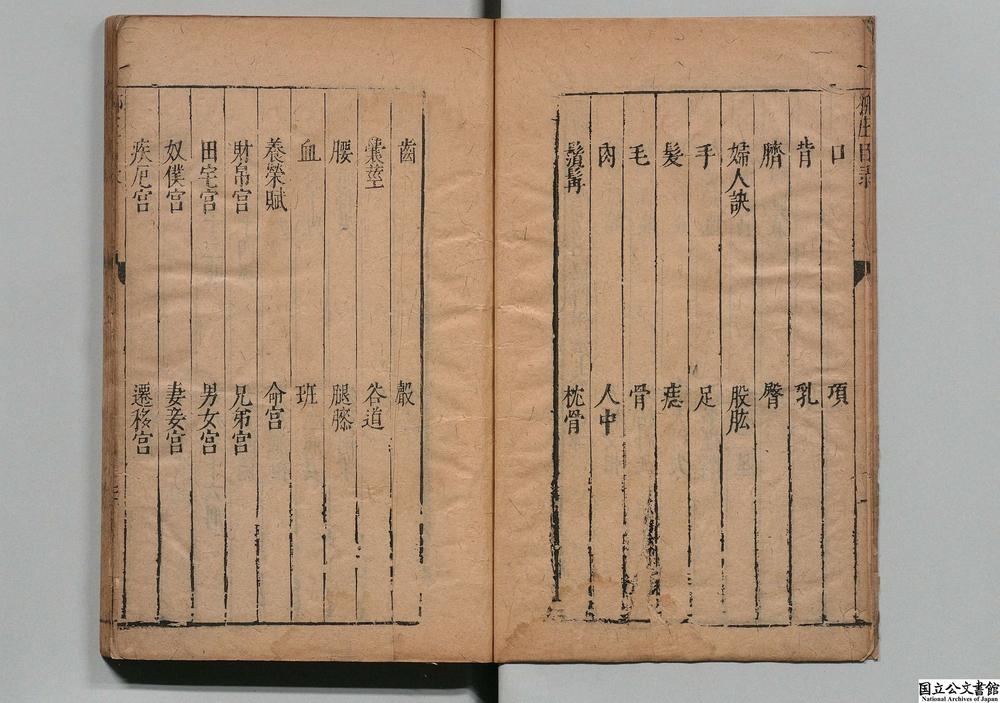 口 項
背 乳
臍 臀
婦人訣 股肱
手 足
髮 痣
毛 骨
肉 人中
鬚髯 枕骨
齒
囊莖 谷道
腰 腿膝
血 班
養榮賦 命宮
財帛宮 兄弟宮
田宅宮 男女宮
奴僕宮 妻妾宮
疾厄宮 遷移宮
国立公文書館
National Archives of Japan